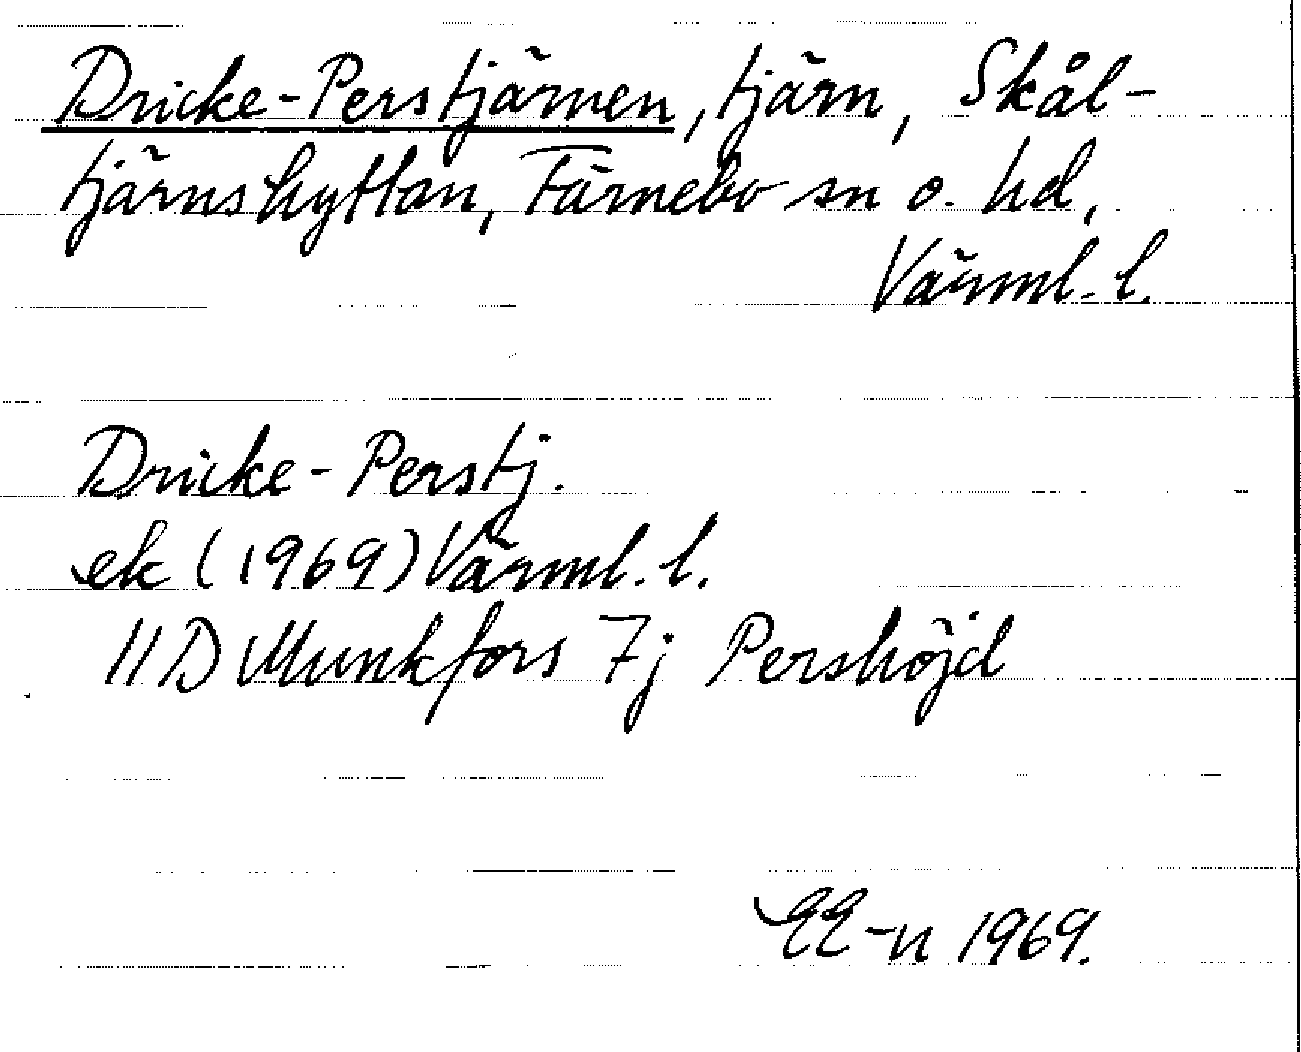 Dricke-Perstjärnen, tjärn, Skål-
tjärnshyttan, Färnebo sn o. hd,
Värml. l.
Dricke-Perstj.
ek (1969) Värml. l.
11D Munkfors 7j Pershöjd
EE-n 1969.